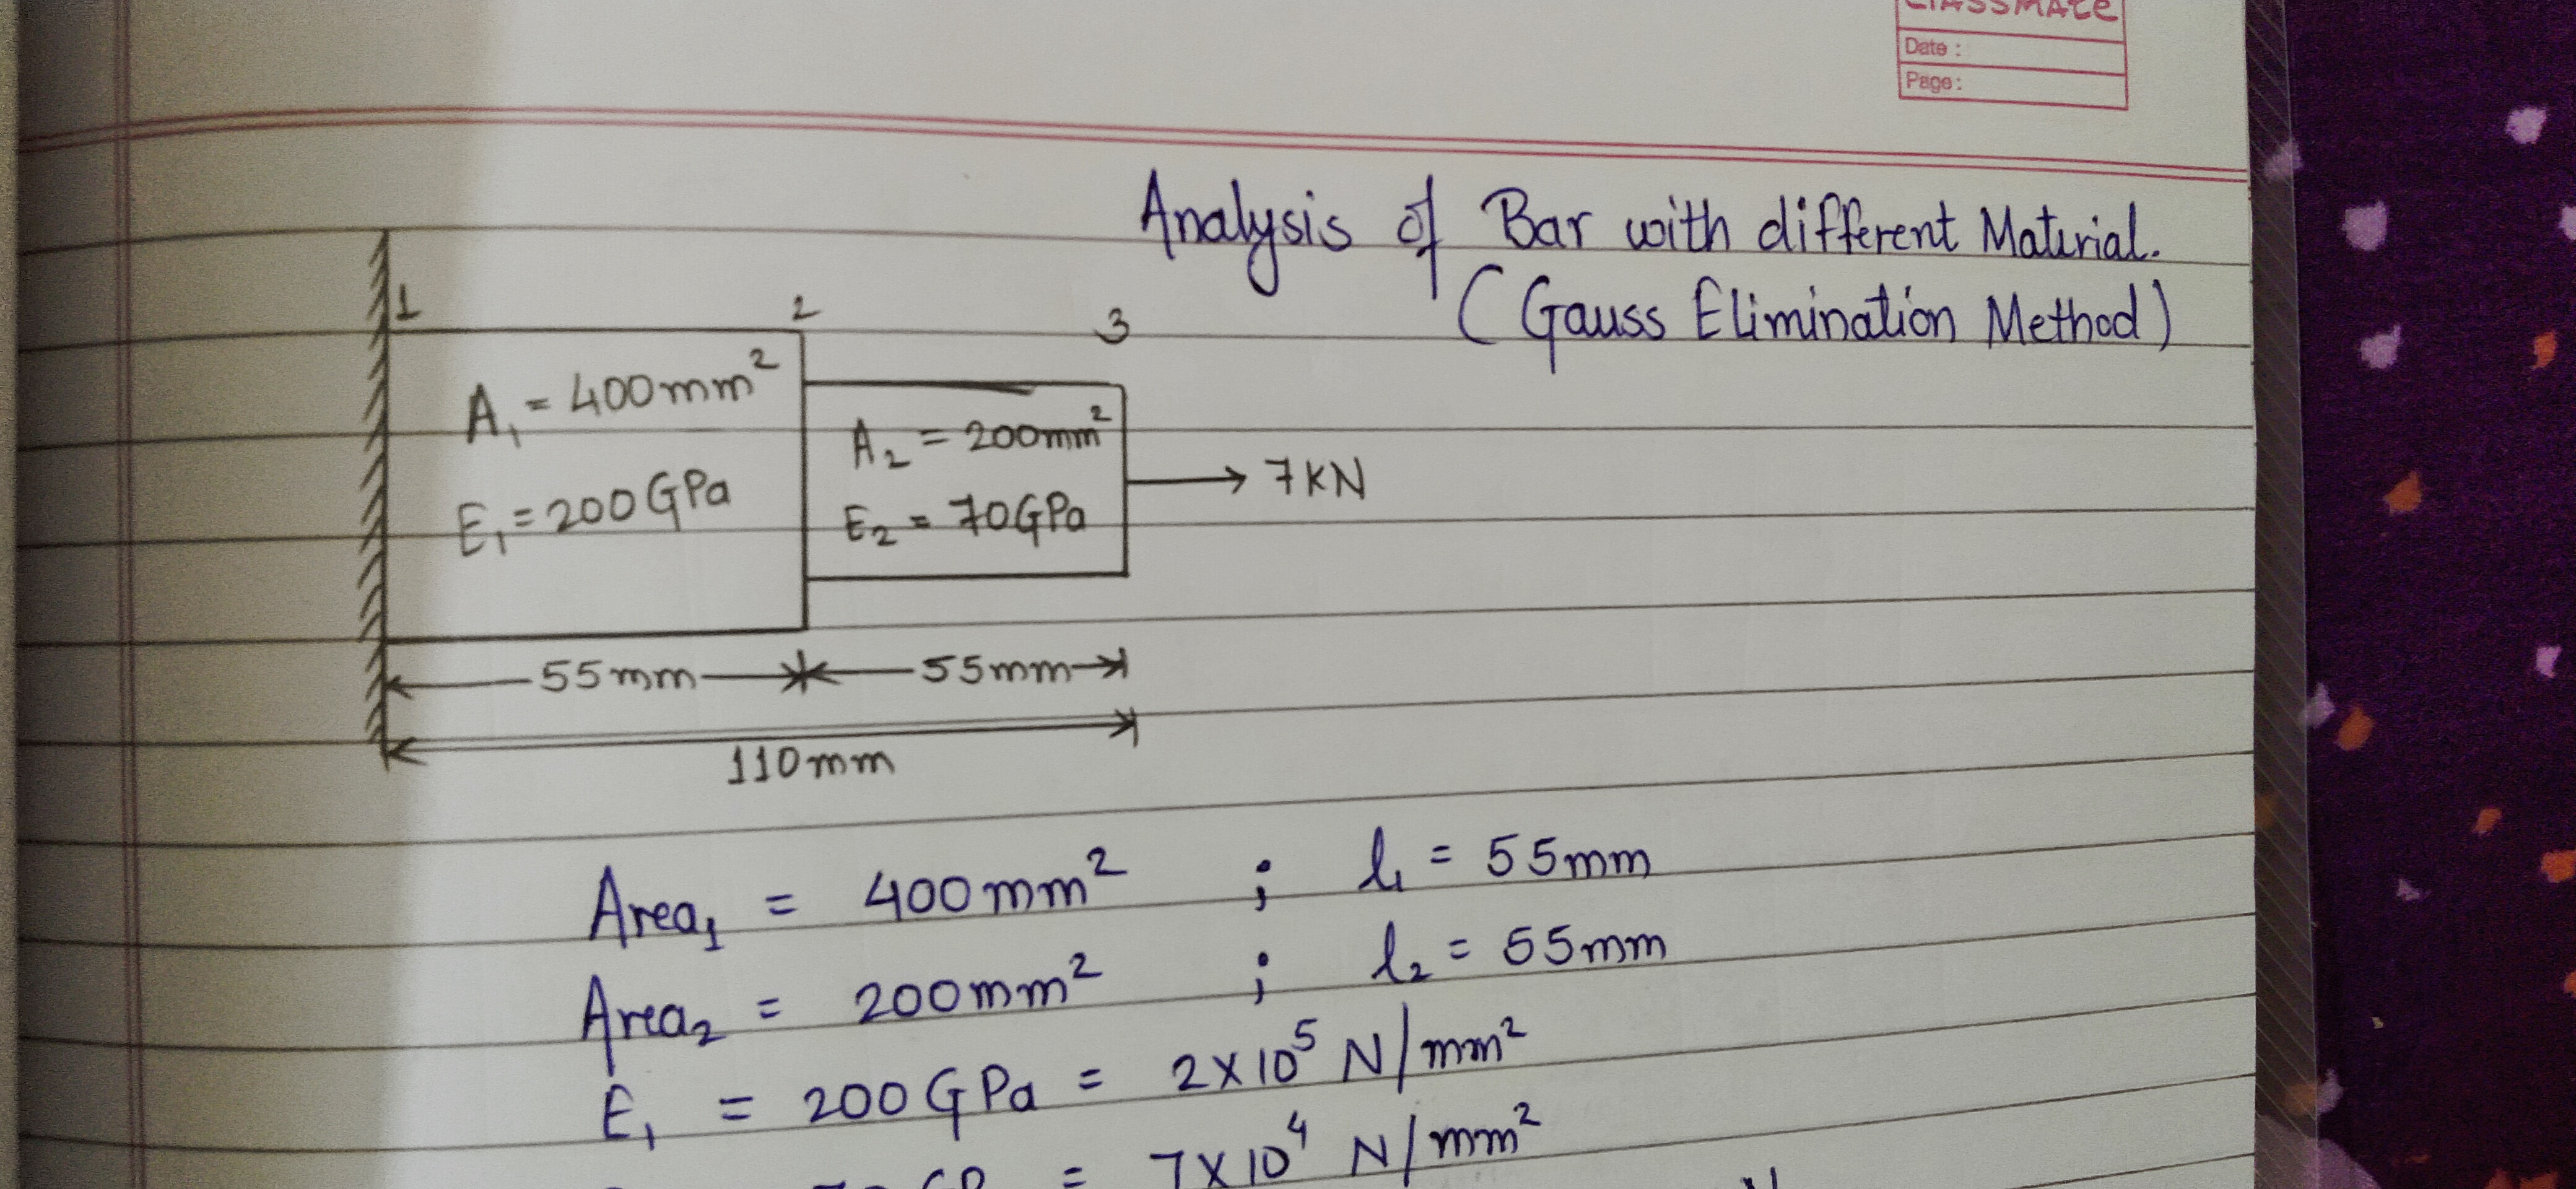 classmate
Date :
Page:
Analysis of Bar with different Material.
(Gauss Elimination Method)
1
2
3
A₁ = 400mm²
E₁ = 200GPa
A₂ = 200mm²
E₂ = 70GPa
7KN
55mm
55mm
110mm
Area₁ = 400mm² ; l₁ = 55mm
Area₂ = 200mm² ; l₂ = 55mm
E₁ = 200GPa = 2X10⁵ N/mm²
= 7X10⁴ N/mm²